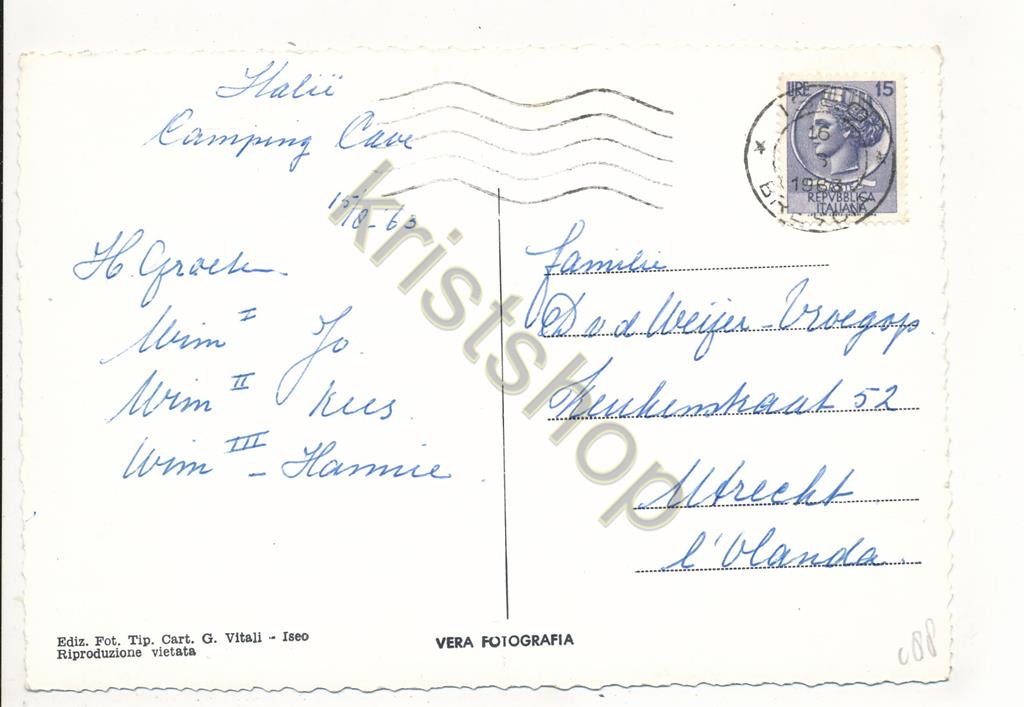 Italië
Camping Cave
15/8-63
H. Groeten.
Wim I Jo.
Wim II Kees.
Wim III - Hannie.
familie
D v d Weijer-Vroegop.
Keukenstraat 52
Utrecht
l'Olanda.
LIRE 15
REPVBBLICA
ITALIANA
16
1963
kristshop
Ediz. Fot. Tip. Cart. G. Vitali - Iseo
Riproduzione vietata
VERA FOTOGRAFIA
c88